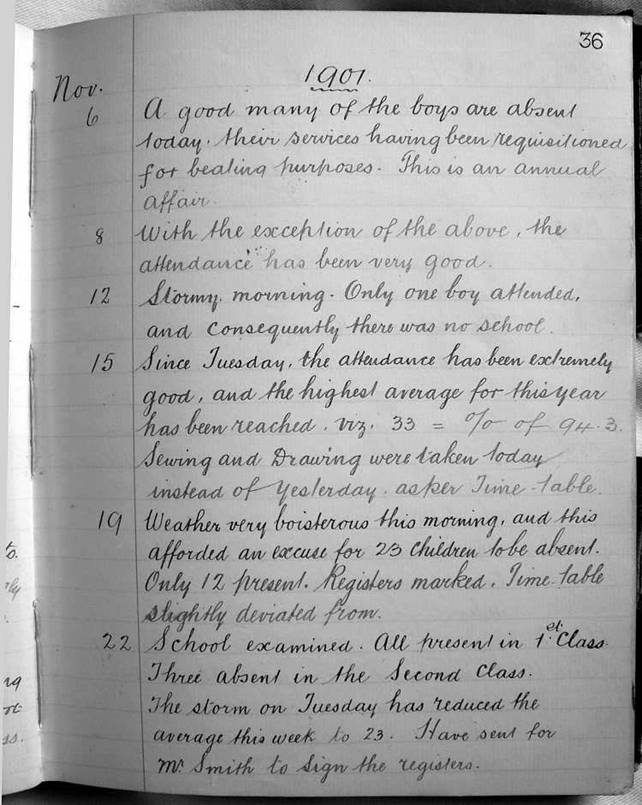 36
1901.
Nov.
6 A good many of the boys are absent
today, their services having been requisitioned
for beating purposes. This is an annual
affair.
8 With the exception of the above, the
attendance has been very good.
12 Stormy morning. Only one boy attended,
and consequently there was no school.
15 Since Tuesday, the attendance has been extremely
good, and the highest average for this year
has been reached. viz. 33 = % of 94.3.
Sewing and Drawing were taken today
instead of Yesterday. as per Time-table.
19 Weather very boisterous this morning, and this
afforded an excuse for 23 children to be absent.
Only 12 present. Registers marked. Time-table
slightly deviated from.
22 School examined. All present in 1st Class.
Three absent in the Second Class.
The storm on Tuesday has reduced the
average this week to 23. Have sent for
Mr. Smith to sign the registers.